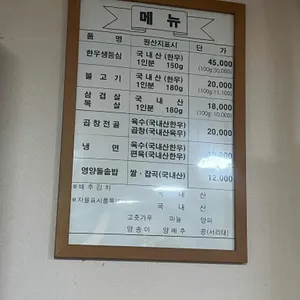 메 뉴
품 명 원산지표시 단 가
한우생등심 국 내 산 (한우) 1인분 150g 45,000 (100g:30,000)
불 고 기 국 내 산 (한우) 1인분 180g 20,000 (100g:11,100)
삼 겹 살 목 살 국 내 산 1인분 180g 18,000 (100g:10,000)
곱창전골 육수(국내산한우) 곱창(국내산육우) 20,000
냉 면 육수(국내산한우) 편육(국내산한우)
영양돌솥밥 쌀·잡곡(국내산) 12,000
※배추김치 국 내 산
※자율표시품목 국 내 산
고춧가루 마늘 양파
양송이 양배추 콩(서리태)